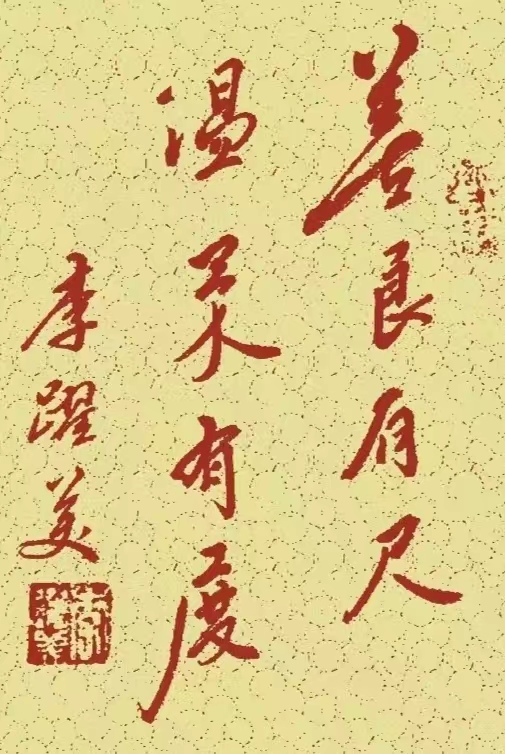 善良有尺
温柔有度
李躍美